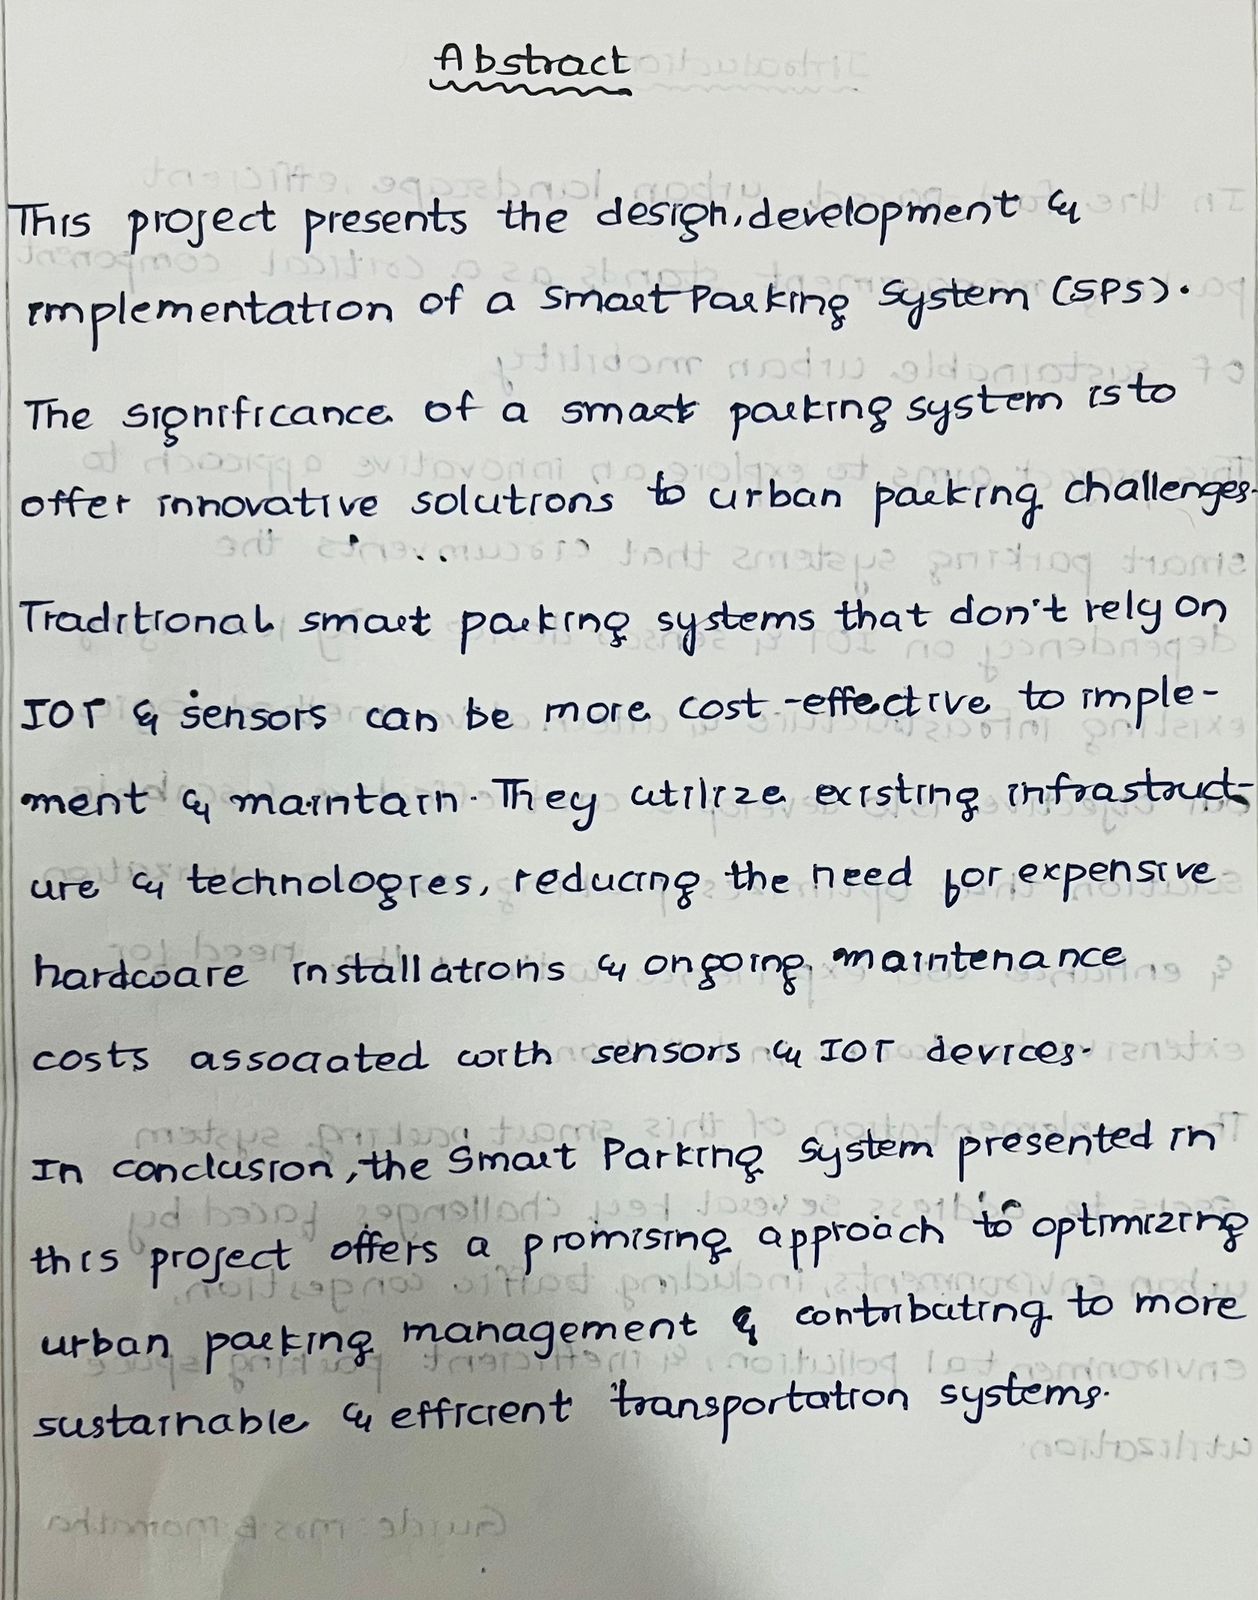 Abstract
This project presents the design, development &
implementation of a Smart Parking System (SPS).
The significance of a smart parking system is to
offer innovative solutions to urban parking challenges.
Traditional smart parking systems that don't rely on
IOT & sensors can be more cost-effective to imple-
ment & maintain. They utilize existing infrastruct-
ure & technologies, reducing the need for expensive
hardware installations & ongoing maintenance
costs associated with sensors & IOT devices.
In conclusion, the Smart Parking System presented in
this project offers a promising approach to optimizing
urban parking management & contributing to more
sustainable & efficient transportation systems.